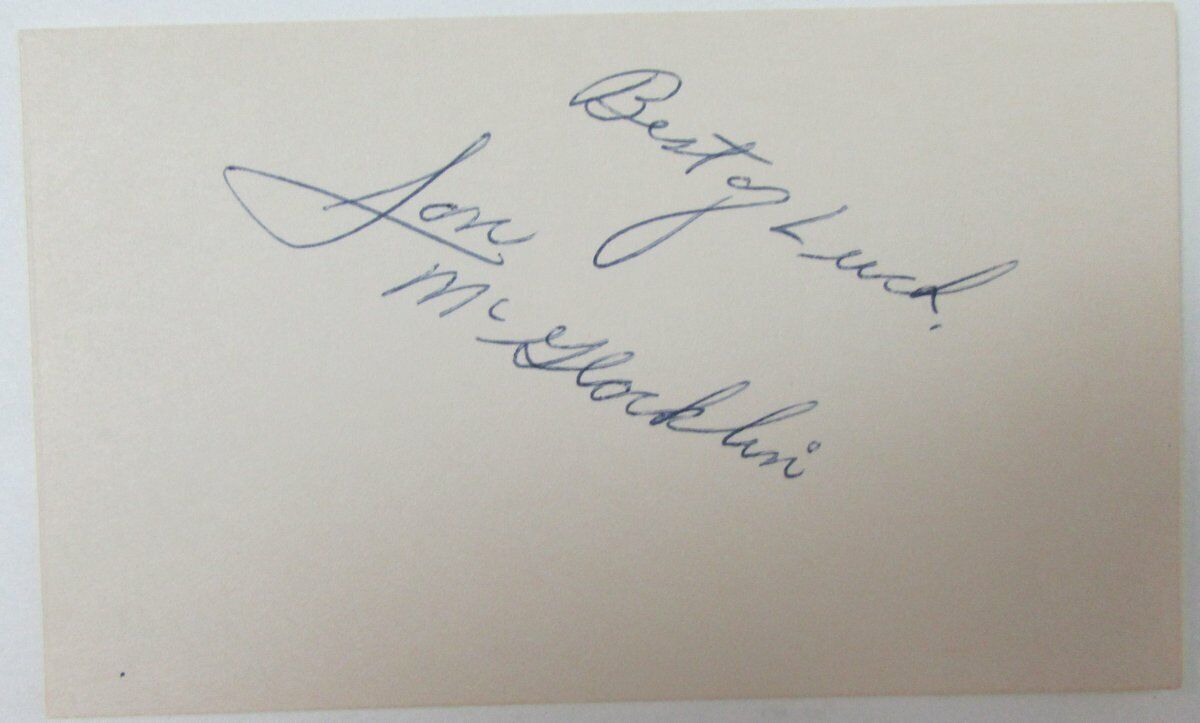 Best of Luck.
Jon
McGlocklin